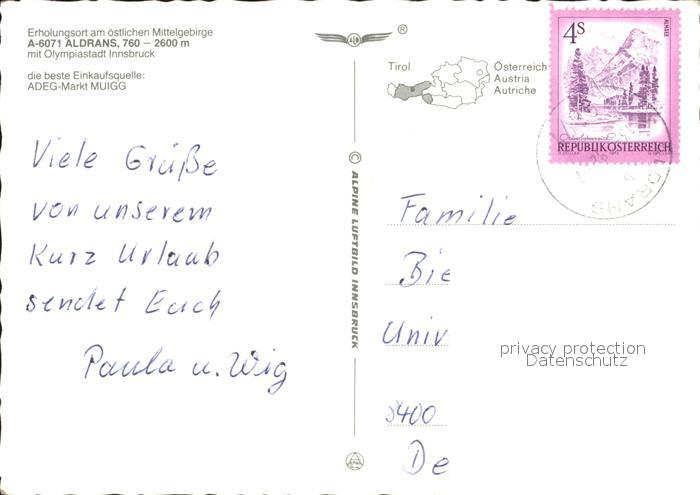 Erholungsort am östlichen Mittelgebirge
A-6071 ALDRANS, 760 – 2600 m
mit Olympiastadt Innsbruck
die beste Einkaufsquelle:
ADEG-Markt MUIGG
Viele Grüße
von unserem
Kurz Urlaub
sendet Euch
Paula u. Wig
© ALPINE LUFTBILD INNSBRUCK
®
Tirol
Österreich
Austria
Autriche
4S
ALMSEE
REPUBLIK ÖSTERREICH
LDRANS
Familie
Bie
Univ
5400
De
privacy protection
Datenschutz